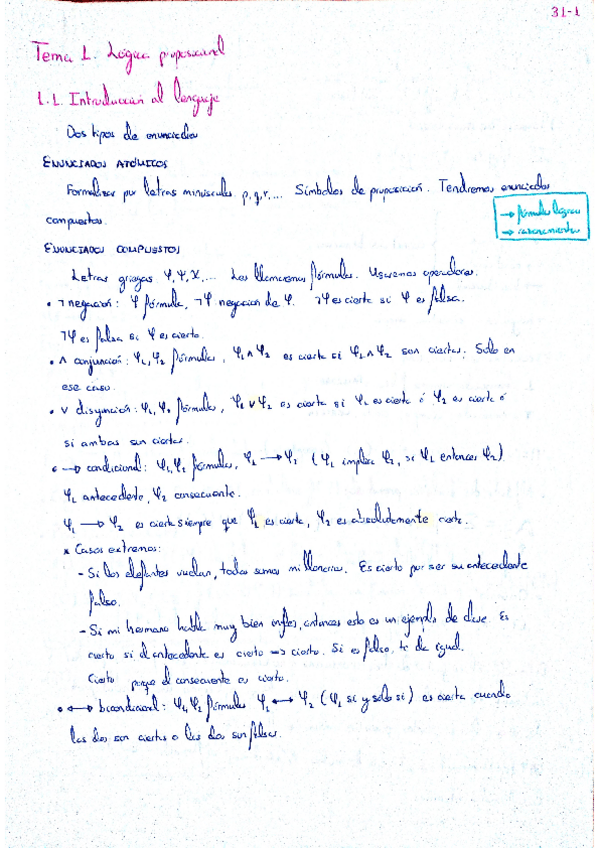 31-1
Tema 1. Lógica proposicional
1.1. Introducción al lenguaje
Dos tipos de enunciados
ENUNCIADOS ATÓMICOS
Formalizar por letras minúsculas p,q,r,... Símbolos de proposición. Tendremos enunciados
compuestos.
→ fórmulas lógicas
→ razonamientos
ENUNCIADOS COMPUESTOS
Letras griegas φ, ψ, χ,... Las llamaremos fórmulas. Usaremos operadores.
• ¬ negación: φ fórmula, ¬φ negación de φ. ¬φ es cierta si φ es falsa.
¬φ es falsa si φ es cierta.
• ∧ conjunción: φ₁, φ₂ fórmulas, φ₁ ∧ φ₂ es cierta si φ₁ ∧ φ₂ son ciertas. Solo en
ese caso.
• ∨ disyunción: φ₁, φ₂ fórmulas, φ₁ ∨ φ₂ es cierta si φ₁ es cierta ó φ₂ es cierta ó
si ambas son ciertas.
• → condicional: φ₁, φ₂ fórmulas, φ₁ → φ₂ (φ₁ implica φ₂, si φ₁ entonces φ₂)
φ₁ antecedente, φ₂ consecuente.
φ₁ → φ₂ es cierta siempre que φ₁ es cierta, φ₂ es absolutamente cierta.
* Casos extremos:
- Si los elefantes vuelan, todos somos millonarios. Es cierto por ser su antecedente
falso.
- Si mi hermano habla muy bien inglés, entonces esto es un ejemplo de clase. Es
cierto si el antecedente es cierto => cierto. Si es falso, te da igual.
Cierto porque el consecuente es cierto.
• ↔ bicondicional: φ₁, φ₂ fórmulas φ₁ ↔ φ₂ (φ₁ si y solo si) es cierta cuando
las dos son ciertas o las dos son falsas.